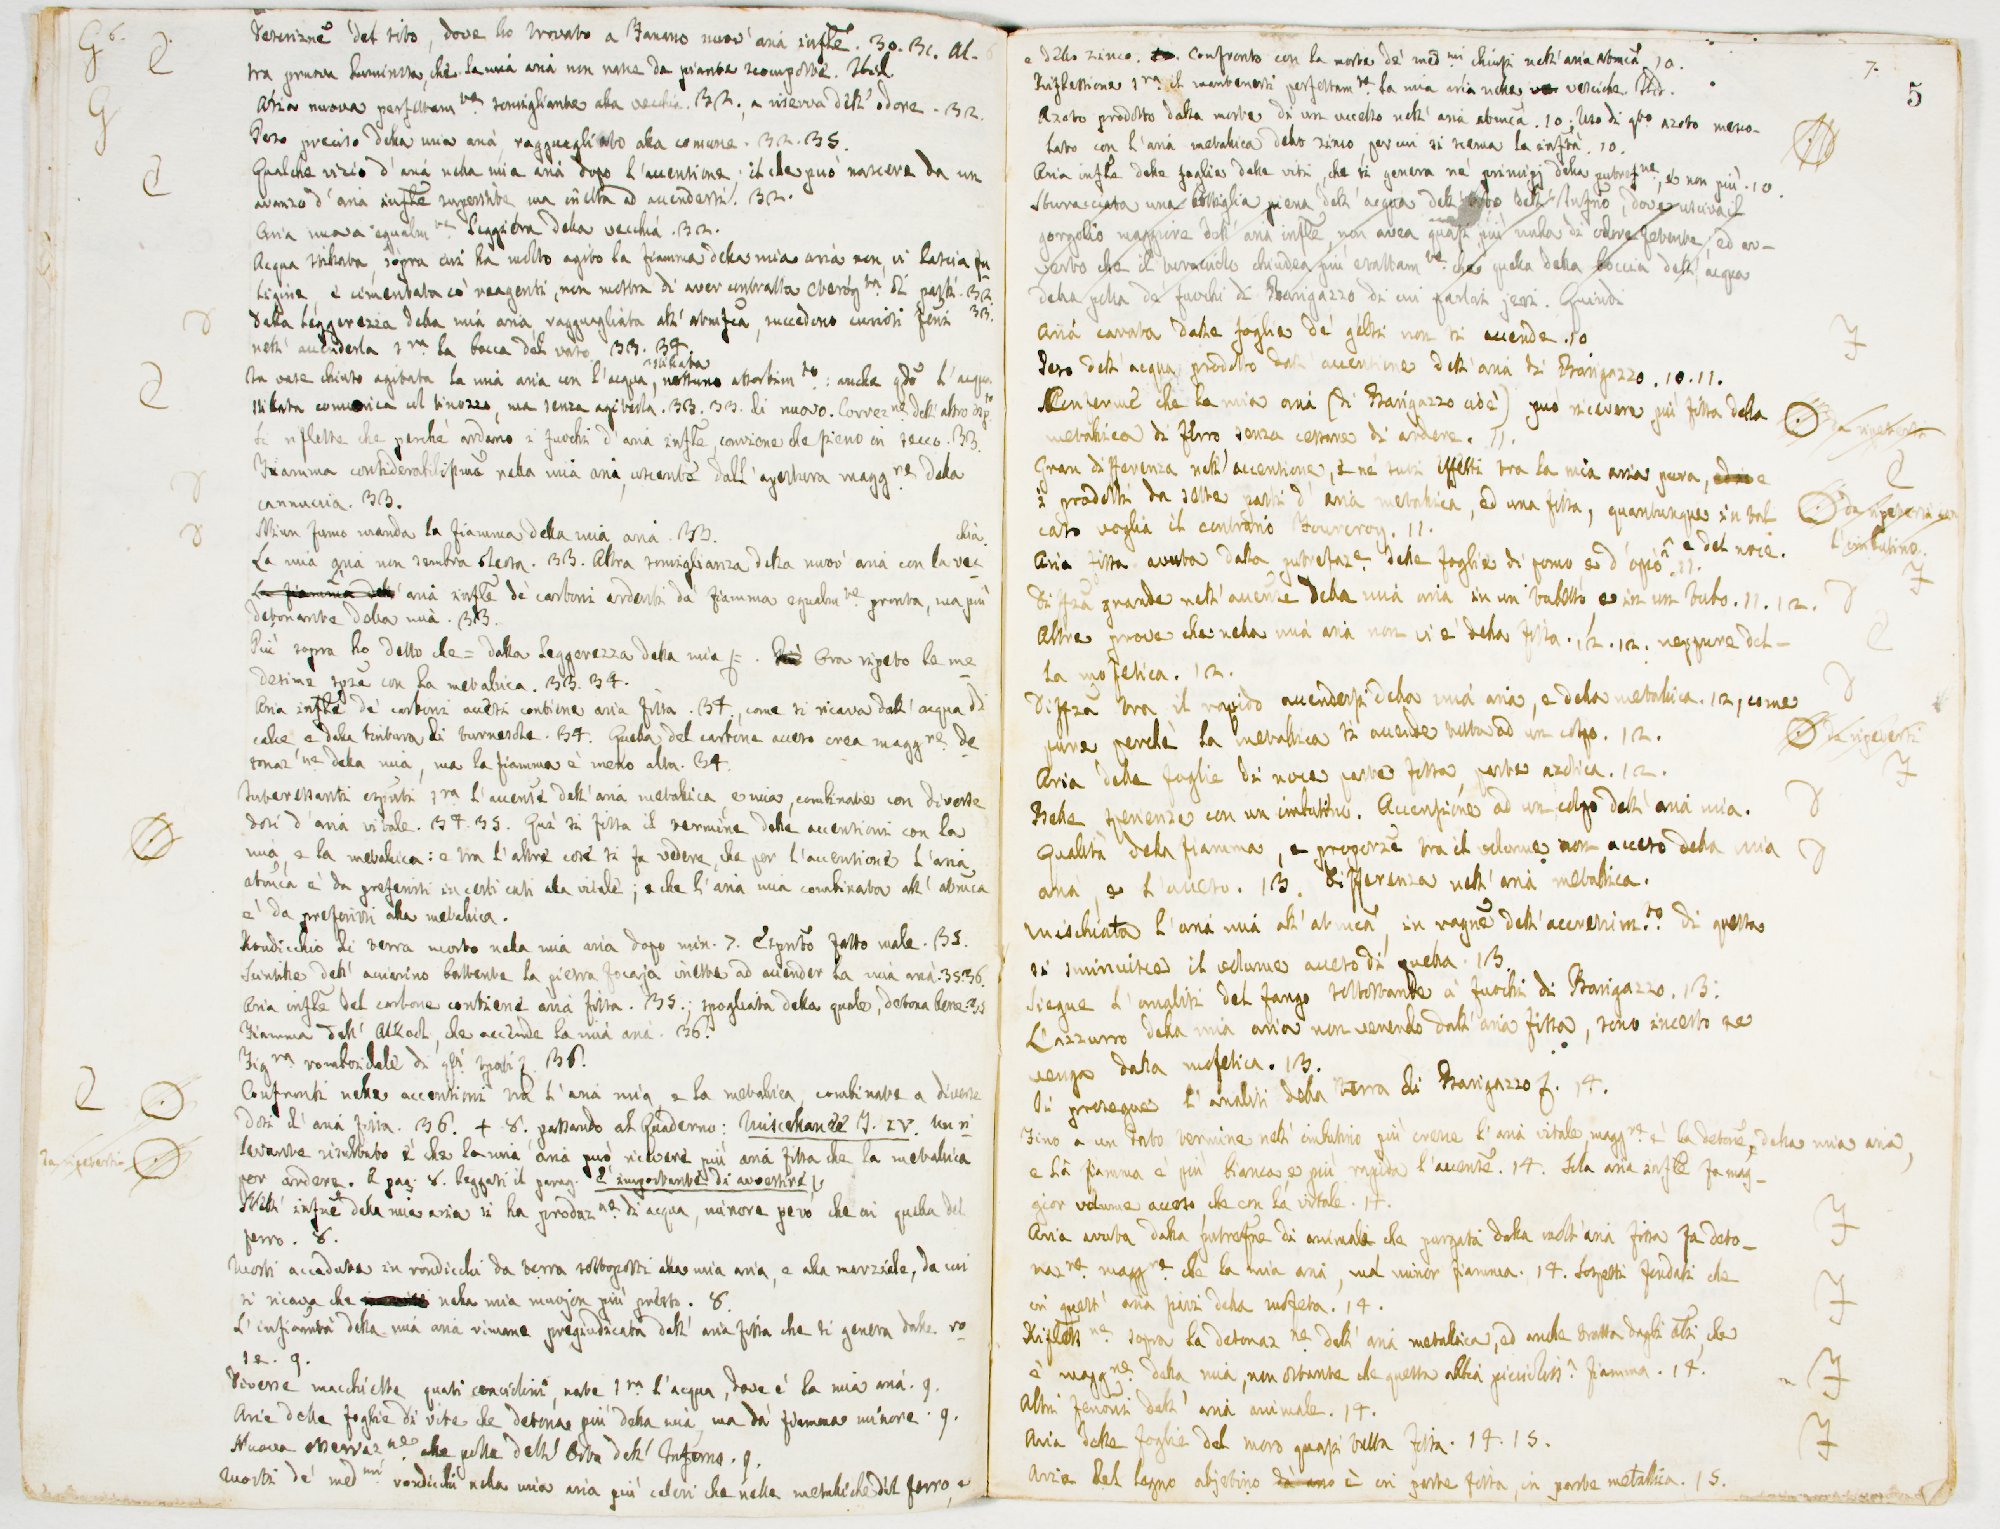 6.
Descrizne del sito, dove ho trovato a Fanano nuov' aria infle. 30. 31. Al-
tra pruova luminosa, che la mia aria non nasce da piante scomposte. Ibid.
Aria nuova perfettamte somigliante alla vecchia. 32., a riserva dell' odore. 32.
Peso preciso della mia aria ragguagliato alla comune. 32. 35.
Qualche vizio d' aria nella mia aria dopo l' accensione: il che può nascere da un
avanzo d' aria infle superstite, ma inetta ad accendersi. 32.
Aria nuova egualmte leggiera della vecchia. 32.
Acqua stillata, sopra cui ha molto agito la fiamma della mia aria non vi lascia fu
liggine, e cimentata co' reagenti, non mostra di aver contratta eterogtà di parti. 32
Dalla leggerezza della mia aria, ragguagliata all' atmosfca, succedono curiosi feni 33.
nell' accenderla sra la bocca del vaso. 33. 34
In vase chiuso agitata la mia aria con l' acqua stillata, nessuno assorbimto: anche qdo l' acqua
stillata comunica col tinozzo, ma senza agitarla. 33. 33. di nuovo. Correzne dell' altro
Si riflette che perchè ardano i fuochi d' aria infle, conviene che sieno in secco. 33
Fiamma considerabilissima nella mia aria, uscente dall' apertura maggre della
cannuccia. 33.
Niun fumo manda la fiamma della mia aria. 33.
chia.
La mia aria non sembra olerta. 33. Altra somiglianza della nuov' aria con la vec-
La fiamma dell' aria infle de' carboni ardenti dà fiamma egualmte pronta, ma più
detonante della mia. 33.
Più sopra ho detto che = dalla leggerezza della mia . Ora ripeto le me
desime spze con la metallica. 33. 34.
Aria infle de' carboni accesi contiene aria fissa. 34., come si ricava dall' acqua di
calce e dalla tintura di turnesole. 34. Quella del carbone acceso crea maggre de
tonazne della mia, ma la fiamma è meno alta. 34.
Interessanti espnti sra l' accense dell' aria metallica, e mia, combinate con diverse
dosi d' aria vitale. 34. 35. Qui si fissa il termine delle accensioni con la
mia, e la metallica: e tra l' altre cose si fa vedere, che per l' accensione l' aria
atmca è da preferirsi in certi casi alla vitale; e che l' aria mia combinata all' atmca
è da preferirsi alla metallica.
Rondicchio di terra morto nella mia aria dopo min. 7. Espnto fatto male. 35.
Scintille dell' acciarino battente la pietra focaja inette ad accender la mia aria. 35. 36.
Aria infle del carbone contiene aria fissa. 35.; spogliata della quale, detona bene. 35
Fiamma dell' Alkool, che accende la mia aria. 36.
Figra romboidale di qti spati. 36.
Confronti nelle accensioni tra l' aria mia, e la metallica, combinate a diverse
dosi d' aria fissa. 36. + 8. passando al Quaderno: Miscellanee J. IV. Un ri
levante risultato è che la mia aria può ricevere più aria fissa che la metallica
per ardere. A pag. 8. leggasi il parag. è importante di avvertire
da ripetersi
Nell' infne della mia aria si ha produzne di acqua, minore però che in quella del
ferro. 8.
Morti accadute in rondicchi da terra sottoposti alla mia aria, e alla marziale, da cui
si ricava che nella mia muojon più presto. 8.
L' infiamtà della mia aria rimane pregiudicata dall' aria fissa che si genera dalle ro
se. 9.
Diverse macchiette quasi concidini, nate sra l' acqua, dove è la mia aria. 9.
Arie delle foglie di vite che detona più della mia, ma dà fiamma minore. 9.
Nuova osservazne alle polle dell' Orto dell' Inferno. 9.
Morti de' medmi rondicchi nella mia aria più celeri che nelle metalliche del ferro, e
7.
5
e dello zinco. Confronto con la morte de' medmi chiusi nell' aria atmca. 10.
Riflessione sra il mantenersi perfettamte la mia aria nelle vesciche. Ibid.
Azoto prodotto dalla morte di un uccello nell' aria atmca. 10; Uso di qto azoto mesco-
lato con l' aria metallica dello zinco per cui si scema la infità. 10.
Aria infle delle foglie delle viti, che si genera ne' principj della putrefne, e non più. 10.
Sturacciata una bottiglia piena dell' acqua dell' Orto dell' Infno, dove usciva il
gorgolio maggiore dell' aria infle, non avea quasi più nulla di odore fetente, ed av-
verto che il turacciolo chiudea più esattamte che quella della boccia dell' acqua
della polla de' fuochi di Barigazzo di cui parlai jeri. Quindi
Aria cavata dalle foglie de' gelsi non si accende. 10
Peso dell' acqua prodotto dall' accensione dell' aria di Barigazzo. 10. 11.
Confermè che la mia aria (di Barigazzo cioè) può ricevere più fissa della
metallica di ferro senza cessare di ardere. 11.
da ripetersi
Gran differenza nell' accensione, e ne' suoi effetti tra la mia aria pura, e
i prodotti da sette parti d' aria metallica, ed una fissa, quantunque in tal
caso voglia il contrario Fourcroy. 11.
da ripetersi con
l' imbutino.
Aria fissa avuta dalla putrefaze delle foglie di pomo e d' opio e del noce. 11.
Diffza grande nell' accense della mia aria in un vasetto, e in un tubo. 11. 12.
Altre prove che nella mia aria non vi è della fissa. 12. 12. neppure del-
la mofetica. 12.
Diffza tra il rapido accendersi della mia aria, e della metallica. 12, come
pure perchè la metallica si accende tutta ad un colpo. 12.
da ripetersi
Aria delle foglie di noce parte fissa, parte azotica. 12.
Belle sperienze con un imbutino. Accensione ad un colpo dell' aria mia.
Qualità della fiamma, e proporze tra il volume non acceso della mia
aria, e l' acceso. 13. Differenza nell' aria metallica.
Mischiata l' aria mia all' atmca, in ragne dell' accrescimto di questa
si sminuisce il volume acceso di quella. 13.
Siegue l' analisi del fango sottostante a' fuochi di Barigazzo. 13.
L' azzurro della mia aria non venendo dall' aria fissa, sono incerto se
venga dalla mofetica. 13.
Si prosegue l' analisi della terra di Barigazzo. 14.
Fino a un certo termine nell' imbutino più cresce l' aria vitale, maggre è la detone della mia aria,
e la fiamma è più bianca e più rapida l' accense. 14. Sola aria infle fa mag-
gior volume acceso, che con la vitale. 14.
Aria avuta dalla putrefne di animali che purgata dalla molt' aria fissa fa deto-
nazne maggre che la mia aria, ma minor fiamma. 14. Sospetti fondati che
in quest' aria siavi della mofeta. 14.
Riflessne sopra la detonazne dell' aria metallica, ed anche tratta dagli alti, che
è maggre della mia, non ostante che questa abbia picciolissa fiamma. 14.
Altri fenoni dell' aria animale. 14.
Aria delle foglie del moro quasi tutta fissa. 14. 15.
Aria del legno abjetino è in parte fissa, in parte metallica. 15.